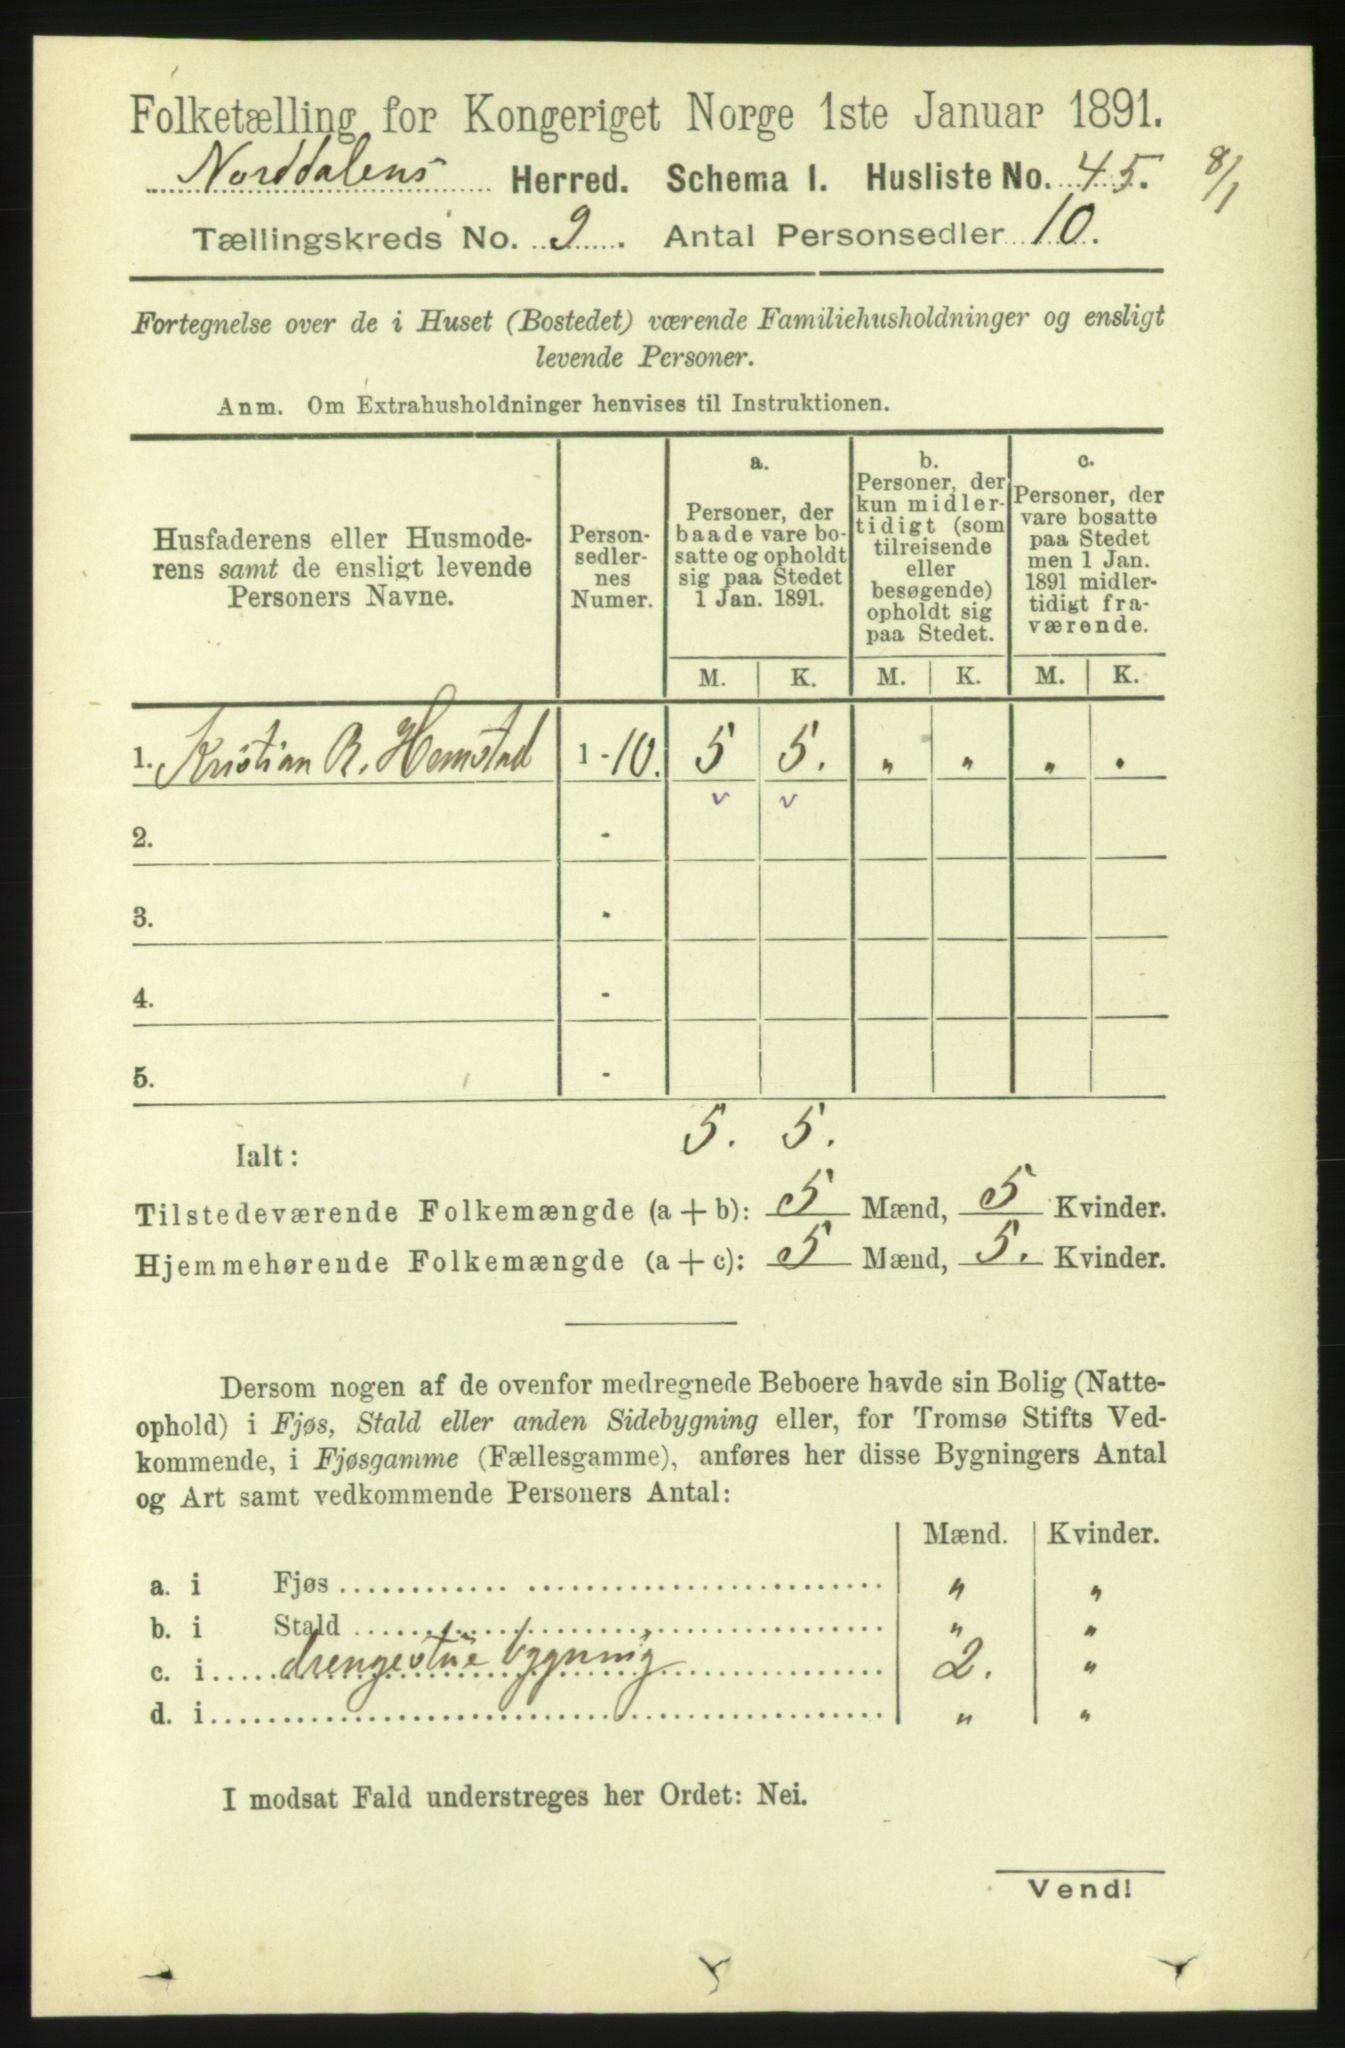 Folketælling for Kongeriget Norge 1ste Januar 1891.
Norddalens Herred. Schema I. Husliste No. 45. 8/1
Tællingskreds No. 9. Antal Personsedler 10.
Fortegnelse over de i Huset (Bostedet) værende Familiehusholdninger og ensligt
levende Personer.
Anm. Om Extrahusholdninger henvises til Instruktionen.
Husfaderens eller Husmode-
rens samt de ensligt levende
Personers Navne.
Person-
sedler-
nes
Numer.
a.
Personer, der
baade vare bo-
satte og opholdt
sig paa Stedet
1 Jan. 1891.
b.
Personer, der
kun midler-
tidigt (som
tilreisende
eller
besøgende)
opholdt sig
paa Stedet.
c.
Personer, der
vare bosatte
paa Stedet
men 1 Jan.
1891 midler-
tidigt fra-
værende.
M. K. M. K. M. K.
1. Kristian R. Hemstad 1-10. 5 5. „ „ „ .
v v
2. -
3. -
4. -
5. -
Ialt: 5. 5.
Tilstedeværende Folkemængde (a + b): 5 Mænd, 5 Kvinder.
Hjemmehørende Folkemængde (a + c): 5 Mænd, 5. Kvinder.
Dersom nogen af de ovenfor medregnede Beboere havde sin Bolig (Natte-
ophold) i Fjøs, Stald eller anden Sidebygning eller, for Tromsø Stifts Ved-
kommende, i Fjøsgamme (Fællesgamme), anføres her disse Bygningers Antal
og Art samt vedkommende Personers Antal:
Mænd. Kvinder.
a. i Fjøs „ „
b. i Stald „ „
c. i drengestue bygning 2. „
d. i „ „
I modsat Fald understreges her Ordet: Nei.
Vend!